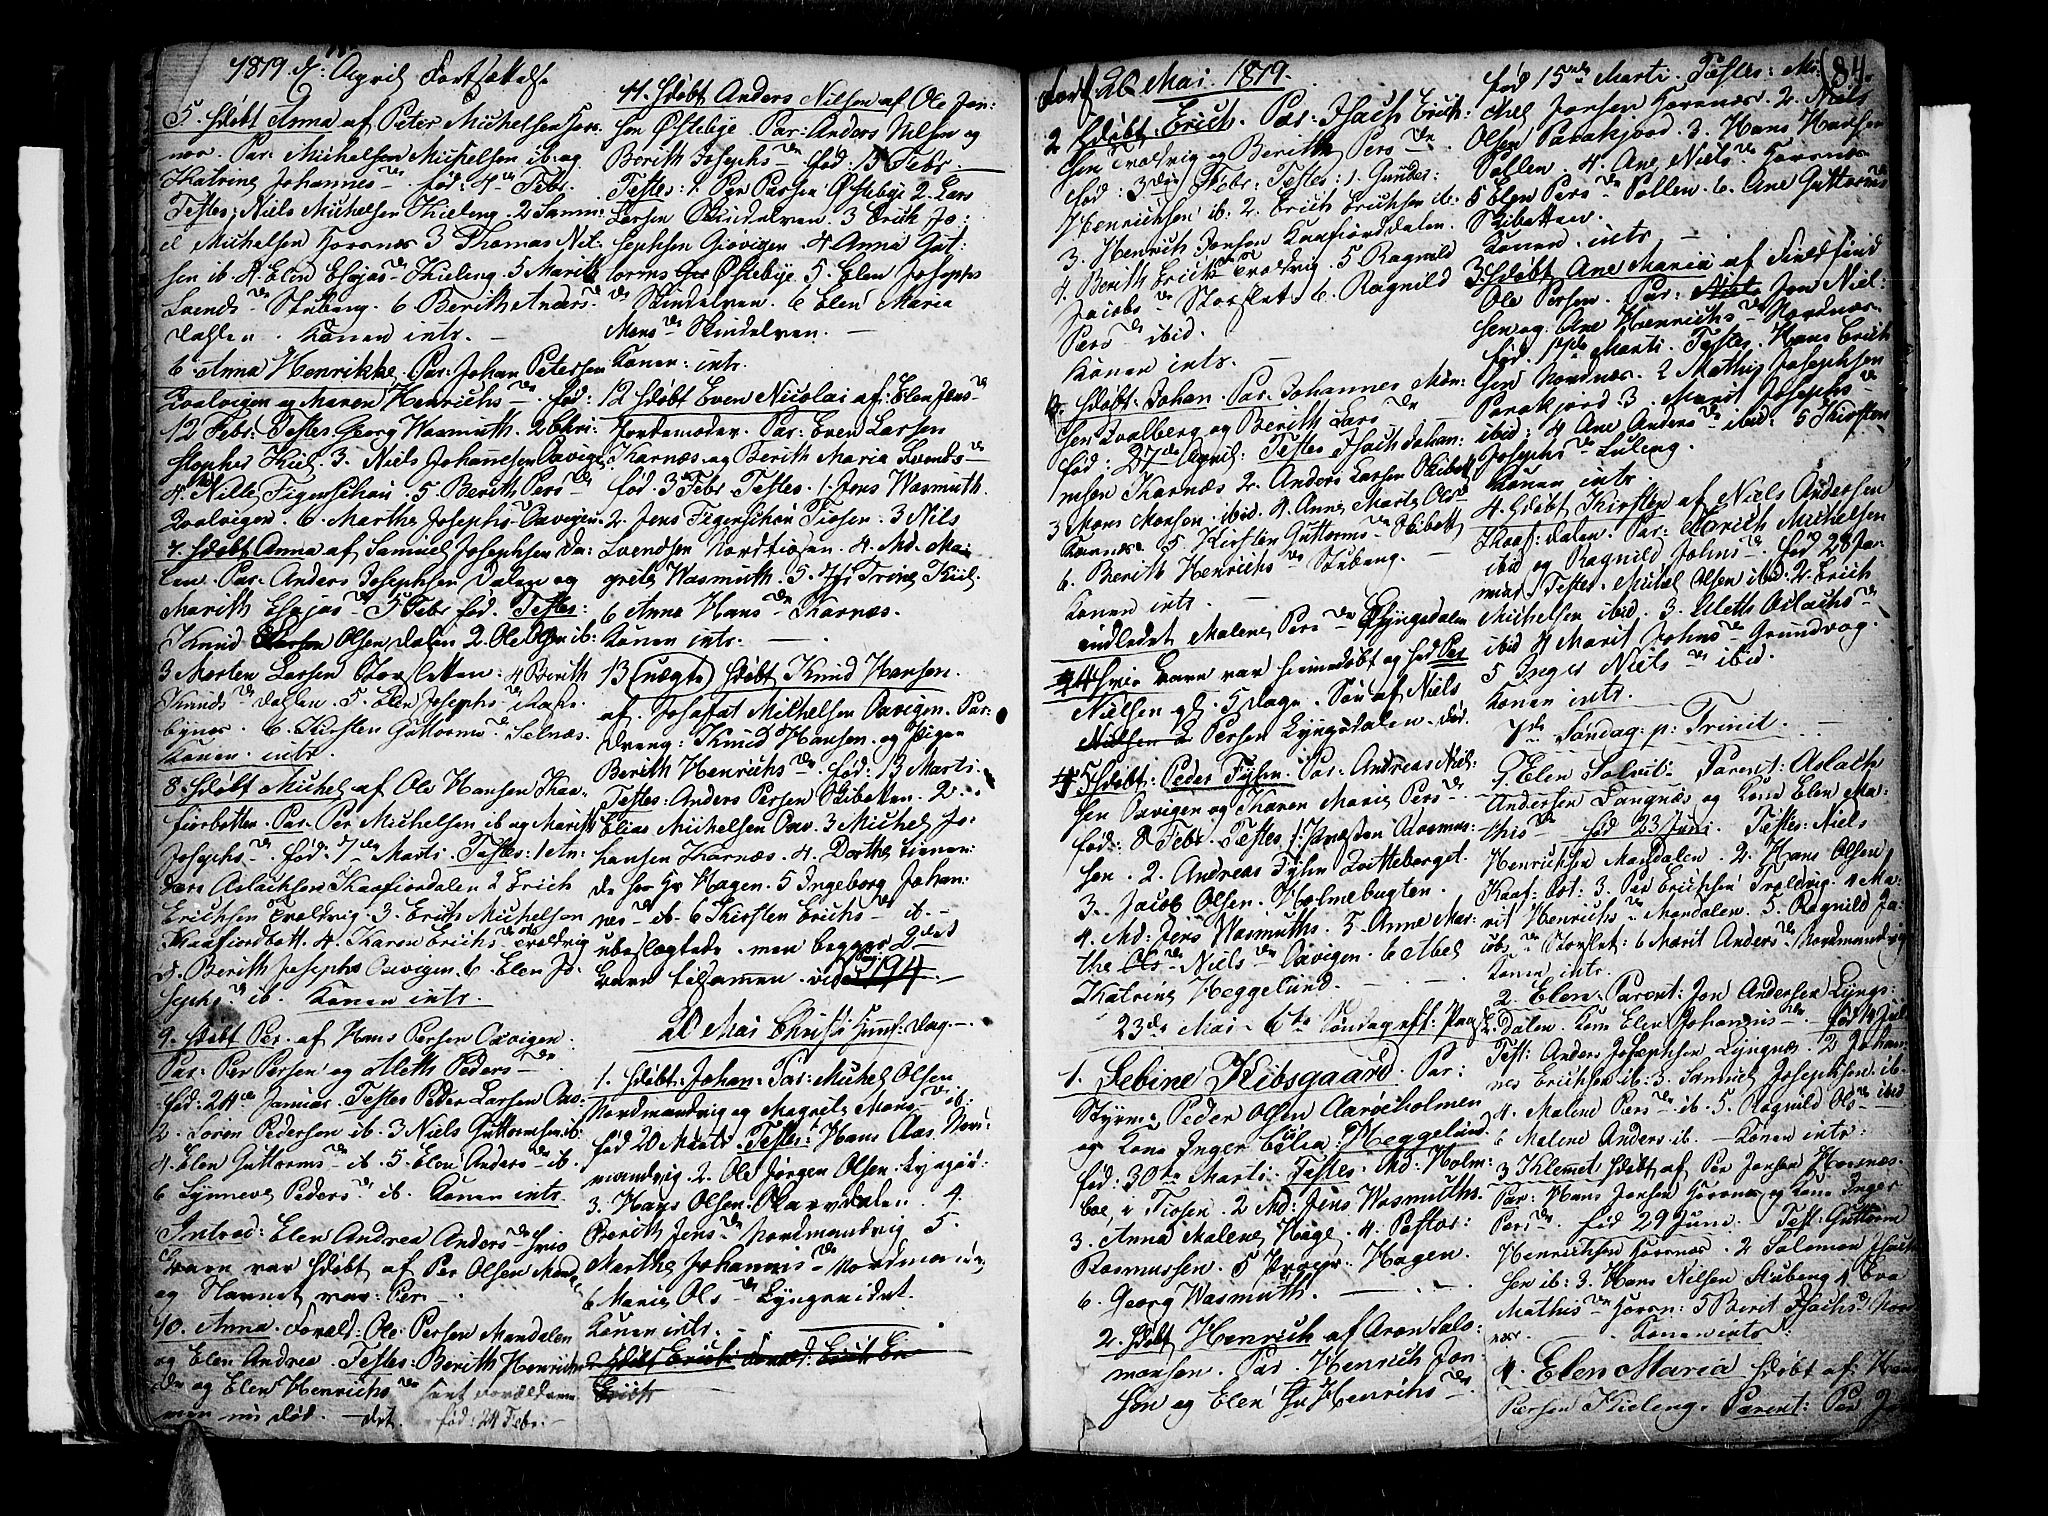 1819 d: April Fortsættelse
5. døbt Anna af Peter Michelsen Horsnæs. Par: Michelsen Michelsen ib. og
Katrine Johannes dr. fød: 4 de Febr.
Testes: Niels Michelsen Kieleng. 2 Samu:
el Michelsen Horsnæs 3 Thomas Niel:
sen ib. 4. Elen Esajas dr Kieleng. 5 Marith
Svends dr Stuberg. 6 Berith Anders dr
Dahlen. Konen intr.
6. Anna Henrikke. Par: Johan Petersen
Qvalvigen og Maren Henrichs dr. fød:
12 Febr: Testes: Georg Wasmuth. 2 Chri:
stopher Kiil. 3. Niels Johannesen Oxvigen
4. Nille Figenschou. 5 Berith Pers dr
Qvalvigen. 6. Marthe Josephs dr Oxvigen.
7. døbt Anna af Samuel Josephsen Da:
len. Par: Anders Josephsen Dalen og
Marith Esajas dr 5 Febr fød. Testes:
1 Knud Olsen Dalen 2. Ole Olsen ib:
3 Morten Larsen Storsletten: 4 Berith
Knuds dr Dahlen. 5. Elen Josephs dr
6. Kirsten Guttorms dr Selnæs.
Konen intr.
8. døbt Michel af Ole Hansen Kaa:
fiorbotten. Par: Per Michelsen ib og Marith
Josephs dr. fød: 7 de Marti. Testes: 1 An:
ders Aslachsen Kaafiordalen 2 Erich
Erichsen Troldvig. 3. Erich Michelsen
Kaafiordbott. 4. Karen Erichs dr Troldvig
5. Berith Josephs Oxvigen. 6 Elen Jo:
sephs dr ib. Konen intr.
9. døbt Per. af Hans Persen Oxvigen.
Par: Per Persen og Aleth Peders dr
fød: 24 de Januar. Testes Peder Larsen Oxv.
2. Soren Pedersen ib. 3 Niels Guttormsen ib.
4. Elen Guttorms dr ib. 5. Elen Anders dr ib.
6 Synneve Peders dr ib. Konen intr.
Introd: Elen Andrea Anders dr hvis
Barn var døbt af Per Olsen Mand
og Navnet var: Per
10. Anna. Foræld: Ole Persen Mandalen
og Elen Andrea. Testes: Berith Henrichs
dr og Elen Henrichs dr samt Forældrene
men nu død. det fød: 24 Febr:
11. døbt Anders Nilsen af Ole Jon:
sen Østebye. Par: Anders Nilsen og
Berith Josephs dr fød. 15 Febr.
Testes: 1. Per Persen Østebye 2. Lars
Larsen Skindelven. 3 Erich Jo:
sephsen Giøvigen. 4 Anna Gut:
torms Østebye. 5. Elen Josephs
dr Skindelven. 6 Elen Maria
Mons dr Skindelven.
Konen: intr.
12 døbt Even Nicolai af: Elen Jens dr
Jordemoder. Par: Even Larsen
Karnæs og Berith Maria Svends dr
fød. 3 de Febr. Testes. 1. Jens Wasmuth.
2. Jens Figenschou Tiosen: 3 Nils
Svendsen Nordtiosen. 4. Md. Ma:
grete Wasmuth. 5. Jfr Trine Kiil.
6 Anna Hans dr Karnæs.
Konen intr.
13 (uægte) døbt Knud Hansen.
af. Josafat Michelsen Oxvigen. Par.
Dreng: Knud Hansen. og Pigen
Berith Henrichs dr. fød: 13 Marti.
Testes: Anders Persen Skibotten. 2.
Elias Michelsen Oxv. 3 Michel Jo:
hansen Karnæs. 4. Dorthe tienen:
de hos Hr Hagen. 5 Ingeborg Johan:
nes dr ib. 6 Kirsten Erichs dr ib.
ubeslægtede. men begges 2 det
Barn tilsammen vide 194.
20 Mai Christi Himf: dag.
1. døbt: Johan. Par: Michel Olsen
Nordmandvig og Magrete Mons dr ib:
fød 20 Marti. Testes: Hans Aas. Nord
mandvig. 2. Ole Jørgen Olsen. Lyngeid:
3. Hans Olsen. Skarvdalen 4.
Berith Jens dr Nordmandvig 5.
Marthe Johannis dr Nordmandv
6 Marie Ols dr Lyngeeidet.
Konen intr.
2 døbt Erich Foræld: Erich Er
Erich
Forts 20 Mai 1819.
2 døbt: Erich. Par: Isach Erich:
sen Troldvig og Berith Pers dr
fød. 3 die Febr: Testes: 1. Gunder
Henrichsen ib: 2. Erich Erichsen ib.
3. Henrich Jonsen Kaafiorddalen.
4. Berith Erichs dr Troldvig. 5 Ragnild
Jacobs dr Storslet. 6. Ragnild
Pers dr ibid.
Konen intr.
3. døbt: Johan. Par. Johannes Mon:
sen Qvalberg og Berith Lars dr
fød: 27 de April: Testes Isach Johan:
nsen Karnæs 2. Anders Larsen Skibott
3 Mons Monsen. ibid. 4. Anne Marte Ols dr
Karnæs. 5 Kirsten Guttorms dr Skibott
6. Berith Henrichs dr Stuberg.
Konen intr.
indledet Malene Pers dr Lyngsdalen
4 hvis Barn var hiemedøbt og hed Per
Nielsen gl: 5 Dage. Søn af Niels
Nielsen Persen Lyngsdalen. død.
5 døbt: Peder Fyhn. Par: Andreas Niel:
sen Oxvigen og Karen Marie Pers dr
fød: 8 Febr. Testes 1: Wasmus:
sen. 2. Andreas Fyhn Zoitteberget.
3. Jacob Olsen. Holmebugten.
4. Md: Jens Wasmuths. 5. Anne Mar:
the Niels dr Oxvigen. 6 Abel
Katrine Heggelund.
23 de Mai 6 te Søndag eft: Paaske
1. Sebine Kibsgaard. Par:
Styrm: Peder Olsen Aarøeholmen
og Kone Inger Cecilia Heggelund.
fød: 30 te Marti. Testes: Md: Holm:
boe i Tiosen. 2 Md: Jens Wasmuths.
3. Anna Malene Hage. 4. Pastor:
Rasmussen. 5 Hagen.
6. Georg Wasmuth.
2. døbt Henrich af Aron Salo:
monsen. Par. Henrich Jon
sen og Elen Henrichs dr.
fød 15 de Marti. Testes: Mi: 84.
chel Jonsen Horsnæs 2. Niels
Olsen Parakjord. 3. Hans Hansen
Pollen. 4. Ane Niels dr Horsnæs.
5 Elen Pers dr Pollen. 6. Ane Guttorms dr
Skibotten.
Konen intr
3. døbt Ane Maria af Fieldfind
Ole Persen. Par: Jon Niel:
sen og Ane Henrichs dr Nordnæs.
fød. 1 ste Marti. Testes. Hans Erich
sen Nordnæs. 2 Mathis Josephsen
Parakjord 3. Marit Josephs dr
ibid: 4 Ane Anders dr ibid: 5 Kirsten
Josephs dr Luleng.
Konen intr.
4. døbt Kirsten af Niels Andersen
Kaaf: dalen. Par: Erich Michelsen
ibid og Ragnild Johns dr. fød 28 Ja:
nuar. Testes. Michel Olsen ibid: 2. Erich
Michelsen ibid. 3. Aleth Aslachs dr
ibid 4 Marit Johns dr Grundvog
5 Inger Niels dr ibid.
Konen intr.
7 de Søndag p: Trinit.
1 Elen Parent: Aslach
Andersen Langnæs og Kone Elen Ma:
this dr fød 23 Juni. Testes: Niels
Henrichsen Mandalen. 2. Hans Olsen
Kaaf: bot: 3. Per Erichsen Troldvig. 4 Ma:
rit Henrichs dr Mandalen. 5. Ragnild Ja:
cobs dr Storslet: 6 Marit Anders dr Nordmandvig
Konen intr.
2. Elen. Parent: Jon Andersen Lyngs:
dalen. Kone Elen Johannis dr
Test: Anders Josephsen Lyngnes. 2 Johan:
nes Erichsen ib: 3. Samuel Josephsen. ib.
4. Malene Pers dr ib. 5. Ragnild Ols dr ibid
6 Malene Anders ib. Konen intr:
3 Klemet døbt af Per Jonsen Horsnæs.
Par: Hans Jonsen Horsnæs og Kone Inger
Pers dr fød 29 Juni. Test: Guttorm
Henrichsen Horsnæs. 2 Salomon Isach
sen ib: 3. Hans Nilsen Stuberg 4 Eva
Mathis dr Horsn: 5 Berit Isachs dr Hors
næs. Konen intr.
4. Elen Maria døbt af: Hans
Persen Kieleng. Parent: Per